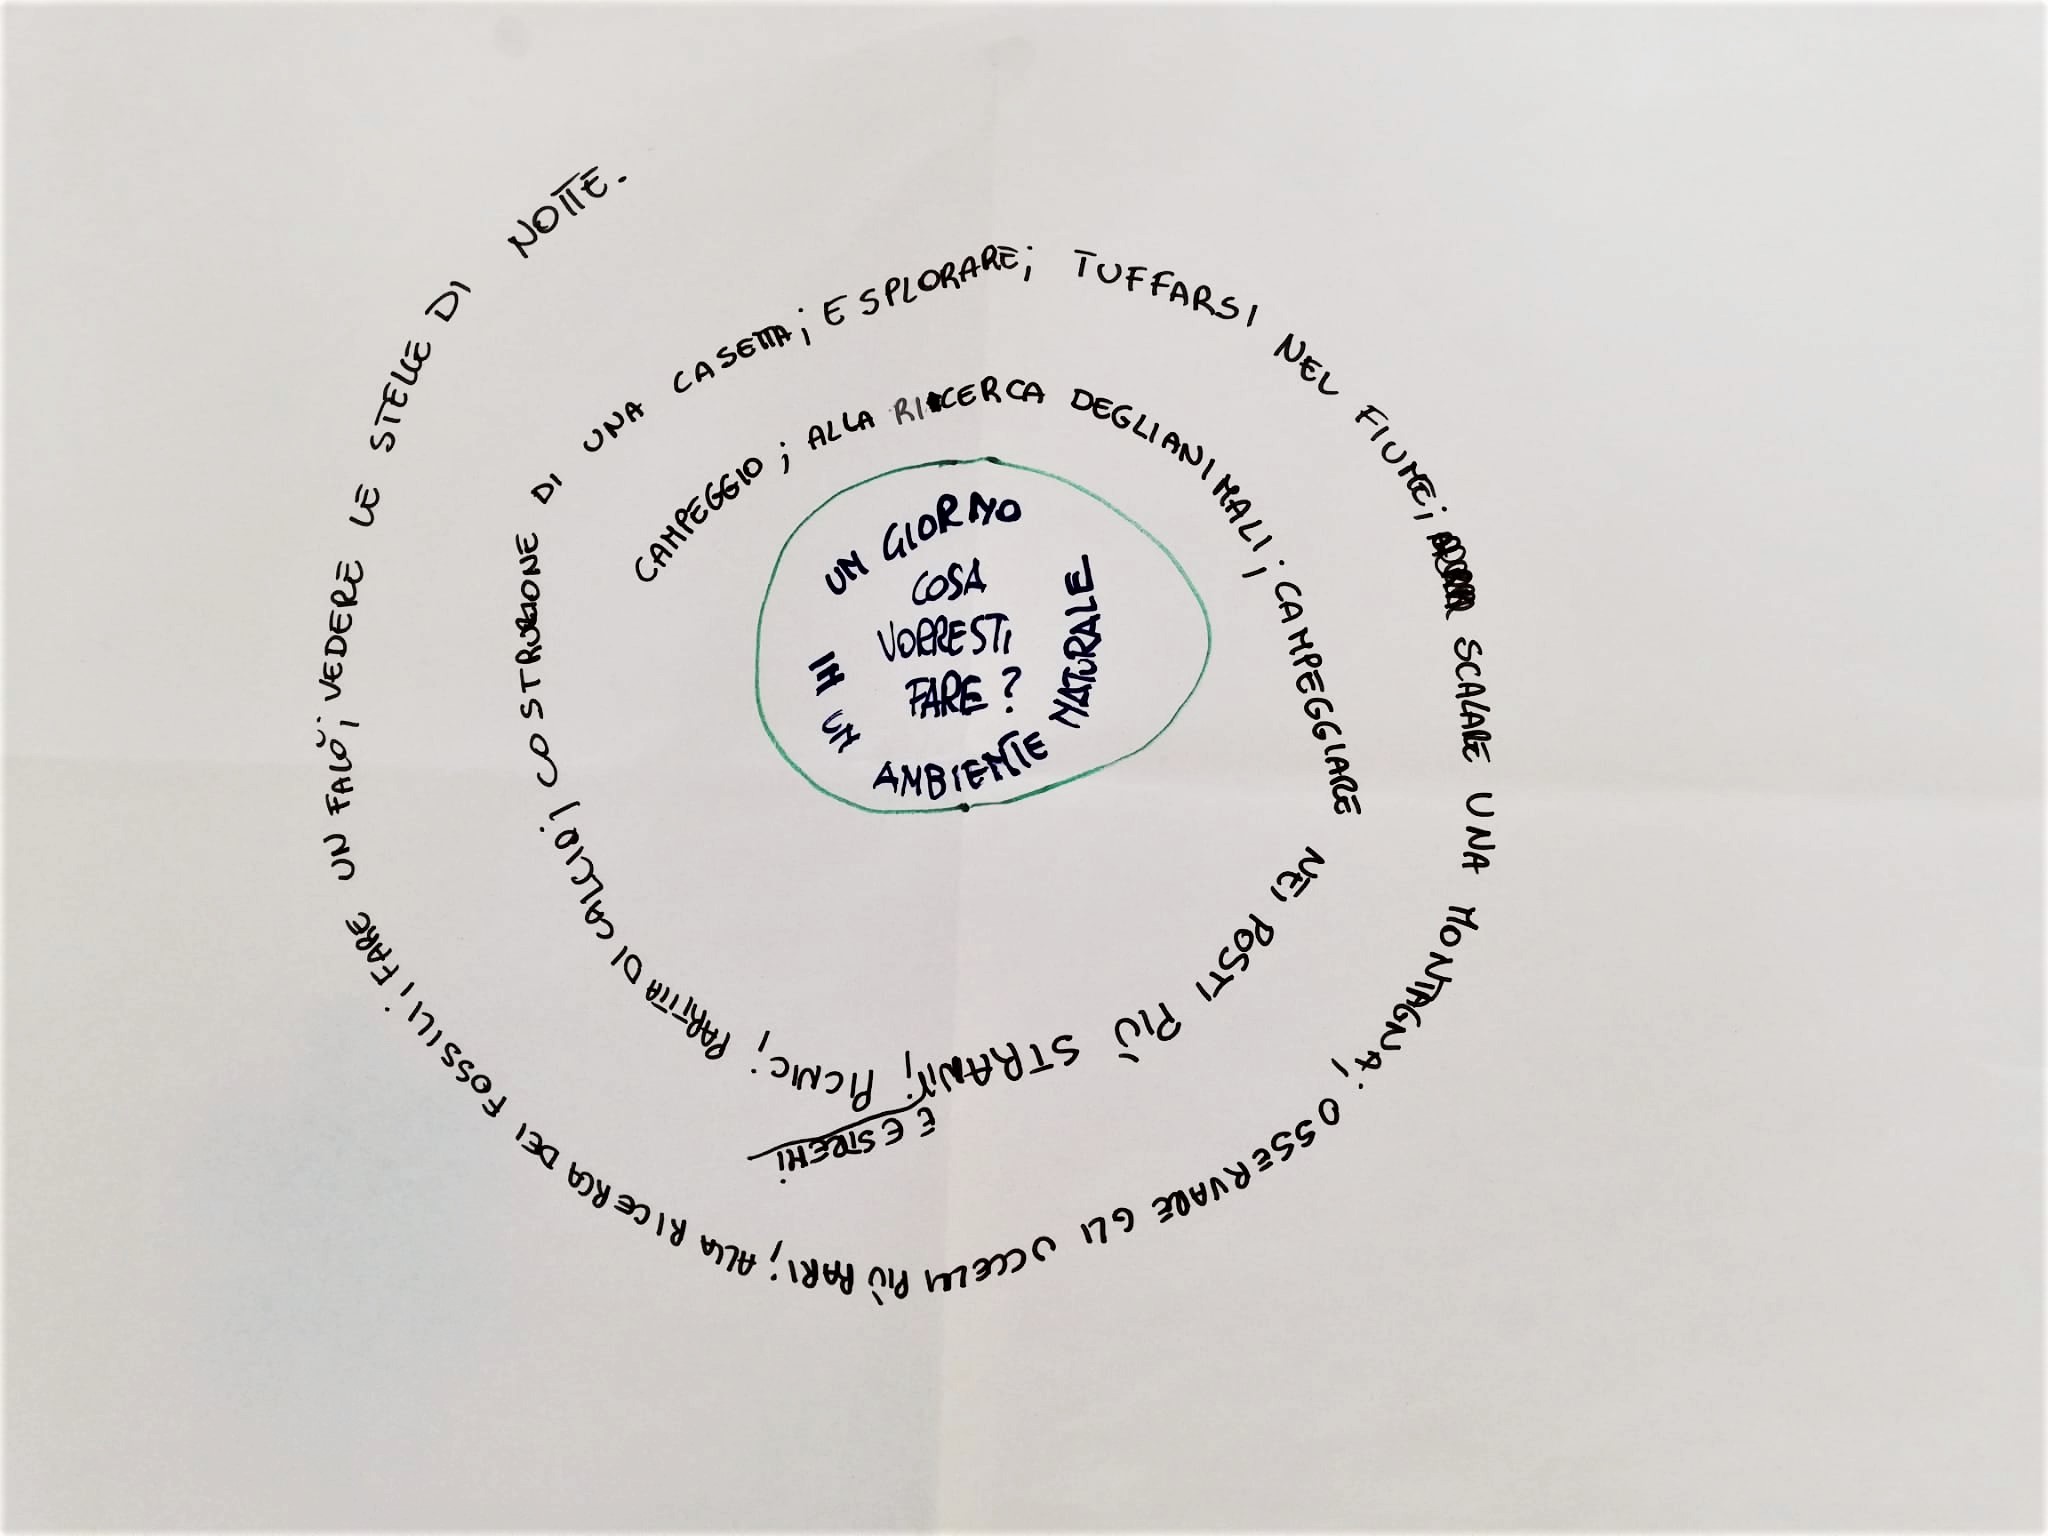 UN GIORNO
COSA
VORRESTI
FARE?
IN UN AMBIENTE NATURALE
CAMPEGGIO; ALLA RICERCA DEGLI ANIMALI; CAMPEGGIARE NEI POSTI PIÙ STRANI; PICNIC; PARTITA DI CALCIO; COSTRUZIONE DI UNA CASETTA; ESPLORARE; TUFFARSI NEL FIUME; SCALARE UNA MONTAGNA; OSSERVARE GLI UCCELLI PIÙ RARI; ALLA RICERCA DEI FOSSILI; FARE UN FALÒ; VEDERE LE STELLE DI NOTTE.
E ESTREMI